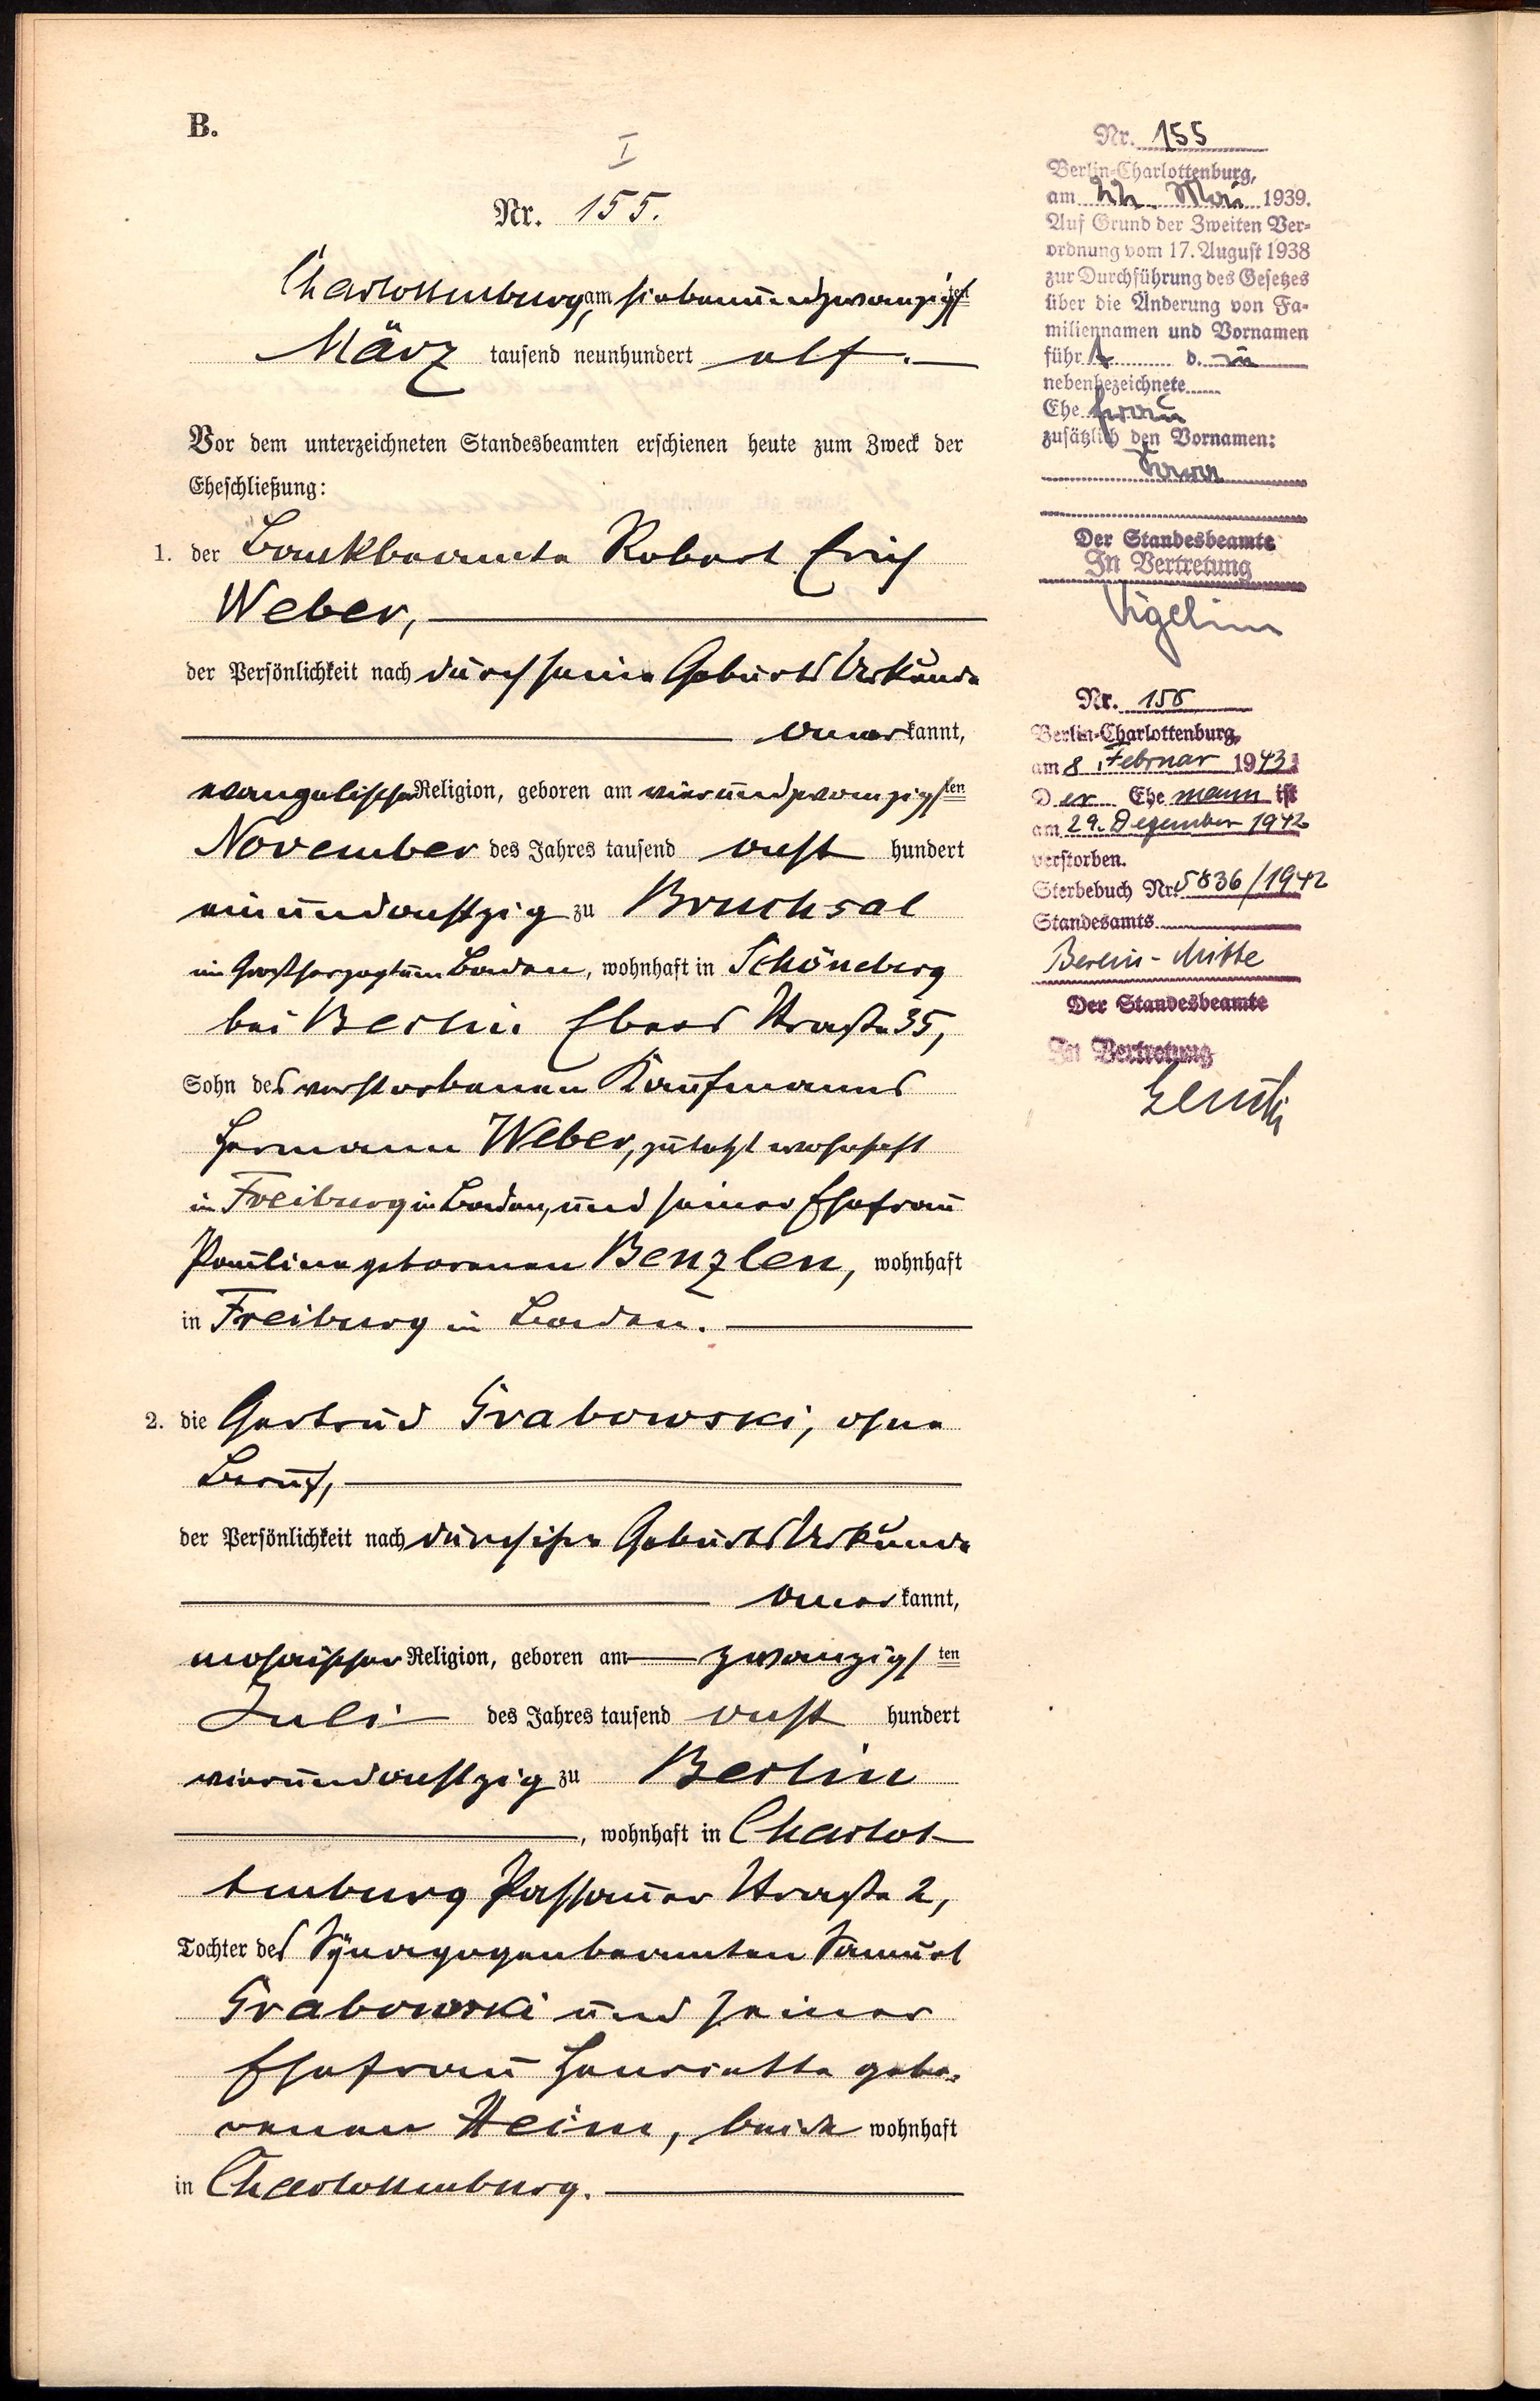 B.
I
Nr. 155.
Charlottenburg, am siebenundzwanzigsten
März tausend neunhundert elf.
Vor dem unterzeichneten Standesbeamten erschienen heute zum Zweck der
Eheschließung:
1. der Bankbeamte Robert Erich
Weber,
der Persönlichkeit nach durch seine Geburts Urkunde
anerkannt,
evangelischer Religion, geboren am vierundzwanzigsten
November des Jahres tausend acht hundert
einundachtzig zu Bruchsal
im Großherzogtum Baden, wohnhaft in Schöneberg
bei Berlin Ebers Straße 35,
Sohn des verstorbenen Kaufmanns
Hermann Weber, zuletzt wohnhaft
in Freiburg in Baden, und seiner Ehefrau
Pauline geborenen Benzlen, wohnhaft
in Freiburg in Baden.
2. die Gertrud Grabowski, ohne
Beruf,
der Persönlichkeit nach durch ihre Geburts Urkunde
anerkannt,
mosaischer Religion, geboren am zwanzigsten
Juli des Jahres tausend acht hundert
vierundachtzig zu Berlin
, wohnhaft in Charlot
tenburg Passauer Straße 2,
Tochter des Synagogenbeamten Samuel
Grabowski und seiner
Ehefrau Henriette gebo-
renen Heim, beide wohnhaft
in Charlottenburg.
Nr. 155
Berlin-Charlottenburg,
am 22. Mai 1939.
Auf Grund der Zweiten Ver-
ordnung vom 17. August 1938
zur Durchführung des Gesetzes
über die Änderung von Fa-
miliennamen und Vornamen
führt d. ie
nebenbezeichnete
Ehefrau
zusätzlich den Vornamen:
Sara
Der Standesbeamte
In Vertretung
Nr. 155
Berlin-Charlottenburg,
am 8. Februar 1943
Der Ehemann ist
am 29. Dezember 1942
verstorben.
Sterbebuch Nr. 5836/1942
Standesamts
Berlin-Mitte
Der Standesbeamte
In Vertretung